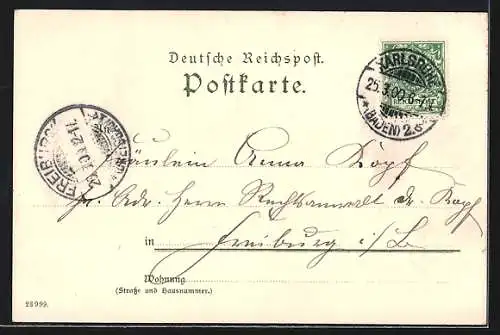 Deutsche Reichspost.
Postkarte.
KARLSRUHE
25.3.00.6-7
(BADEN) 2.
REICHSPOST
FREIBURG
12-1
Fräulein Anna Kopf
pr. Adr. Herrn Rechtsanwalt dr. Kopf
in Freiburg i/B
Wohnung
(Straße und Hausnummer.)
28999.